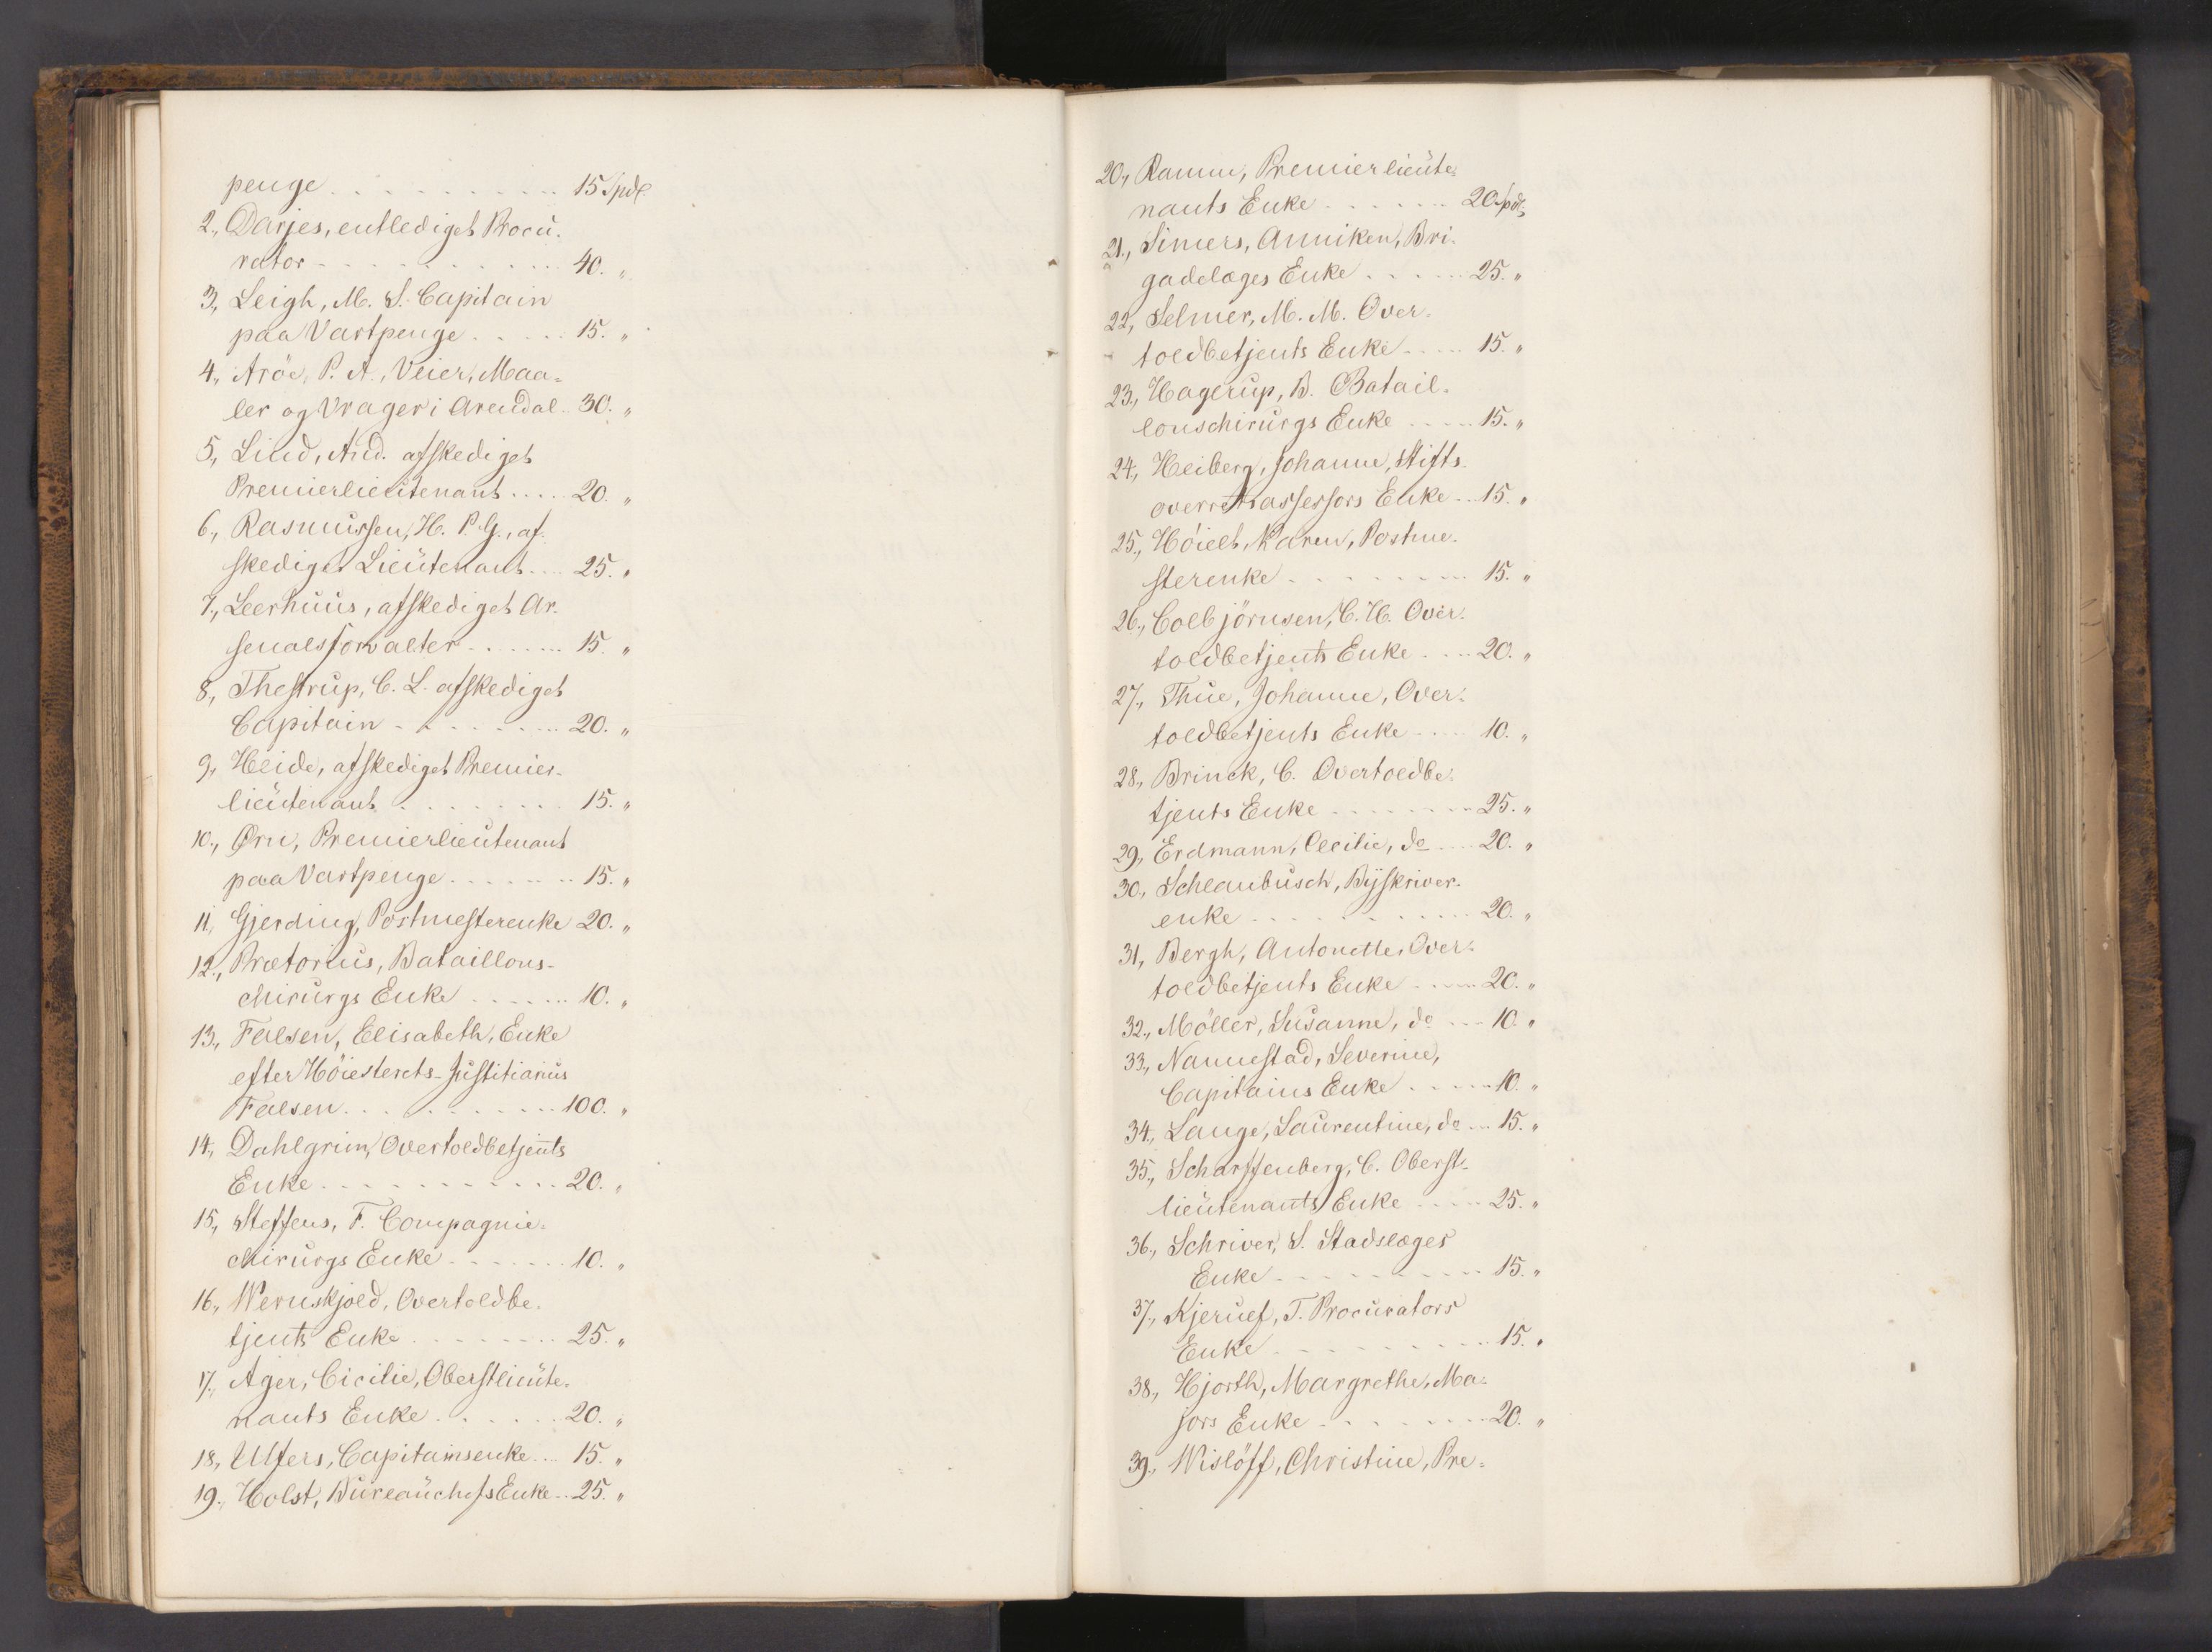 penge . . . . . . . . . . 15 Spdl.
2., Darjes, entlediget Procu-
rator . . . . . . . . . . . 40. "
3., Leigh, M. S. Capitain
paa Vartpenge . . . . . 15. "
4., Aröe, P. A., Veier, Maa-
ler og Vrager i Arendal . . 30. "
5., Lind, And. afskediget
Premierlieutenant . . . . . 20. "
6., Rasmussen, H. P. G., af-
skediget Lieutenant . . . . 25. "
7., Leerhuus, afskediget Ar-
senalsforvalter . . . . . . . 15. "
8., Thestrup, C. L. afskediget
Capitain . . . . . . . . . 20. "
9., Heide, afskediget Premier-
lieutenant . . . . . . . . 15. "
10., Ørn, Premierlieutenant
paa Vartpenge . . . . . . . 15. "
11., Gjerding, Postmesterenke 20. "
12., Prætorius, Bataillons-
chirurgs Enke . . . . . . 10. "
13., Falsen, Elisabeth, Enke
efter Höiesterets-Justitiarius
Falsen . . . . . . . . . . . 100. "
14., Dahlgrim, Overtoldbetjents
Enke . . . . . . . . . . . . 20. "
15., Steffens, F. Compagnie-
chirurgs Enke . . . . . . . 10. "
16., Wernskjold, Overtoldbe-
tjents Enke . . . . . . . . 25. "
17., Ager, Cicilie, Oberstlieute-
nants Enke . . . . . . 20. "
18., Ulfers, Capitainsenke . . . 15. "
19., Holst, Bureauchefs Enke . . 25. "
20., Ramm, Premierlieute-
nants Enke . . . . . . . 20 Spdl.
21., Simers, Anniken, Bri-
gadelæges Enke . . . . . 25. "
22., Selmer, M. M. Over-
toldbetjents Enke . . . . 15. "
23., Hagerup, B. Batail-
lonschirurgs Enke . . . . 15. "
24., Heiberg, Johanne, Stifts-
overretsassessors Enke . . . 15. "
25., Höielt, Karen, Postme-
sterenke . . . . . . . . . 15. "
26., Colbjörnsen, C. H. Over-
toldbetjents Enke . . . . 20. "
27., Thue, Johanne, Over-
toldbetjents Enke . . . . 10. "
28., Brinck, C. Overtoldbe-
tjents Enke . . . . . . . . 25. "
29., Erdmann, Cecilie, do . . . 20. "
30., Schlanbusch, Byskriver-
enke . . . . . . . . . . . 20. "
31., Bergh, Antonette, Over-
toldbetjents Enke . . . . . 20. "
32., Möller, Susanne, do . . . 10. "
33., Nannestad, Severine,
Capitains Enke . . . . . 10. "
34., Lange, Laurentine, do . . . 15. "
35., Scharffenberg, C. Oberst-
lieutenants Enke . . . . 25. "
36., Schriver, S. Stadslæges
Enke . . . . . . . . . . 15. "
37., Kjerulf, T. Procurators
Enke . . . . . . . . . . 15. "
38., Hjorth, Margrethe, Ma-
jors Enke . . . . . . . . 20. "
39., Wislöff, Christine, Pre-